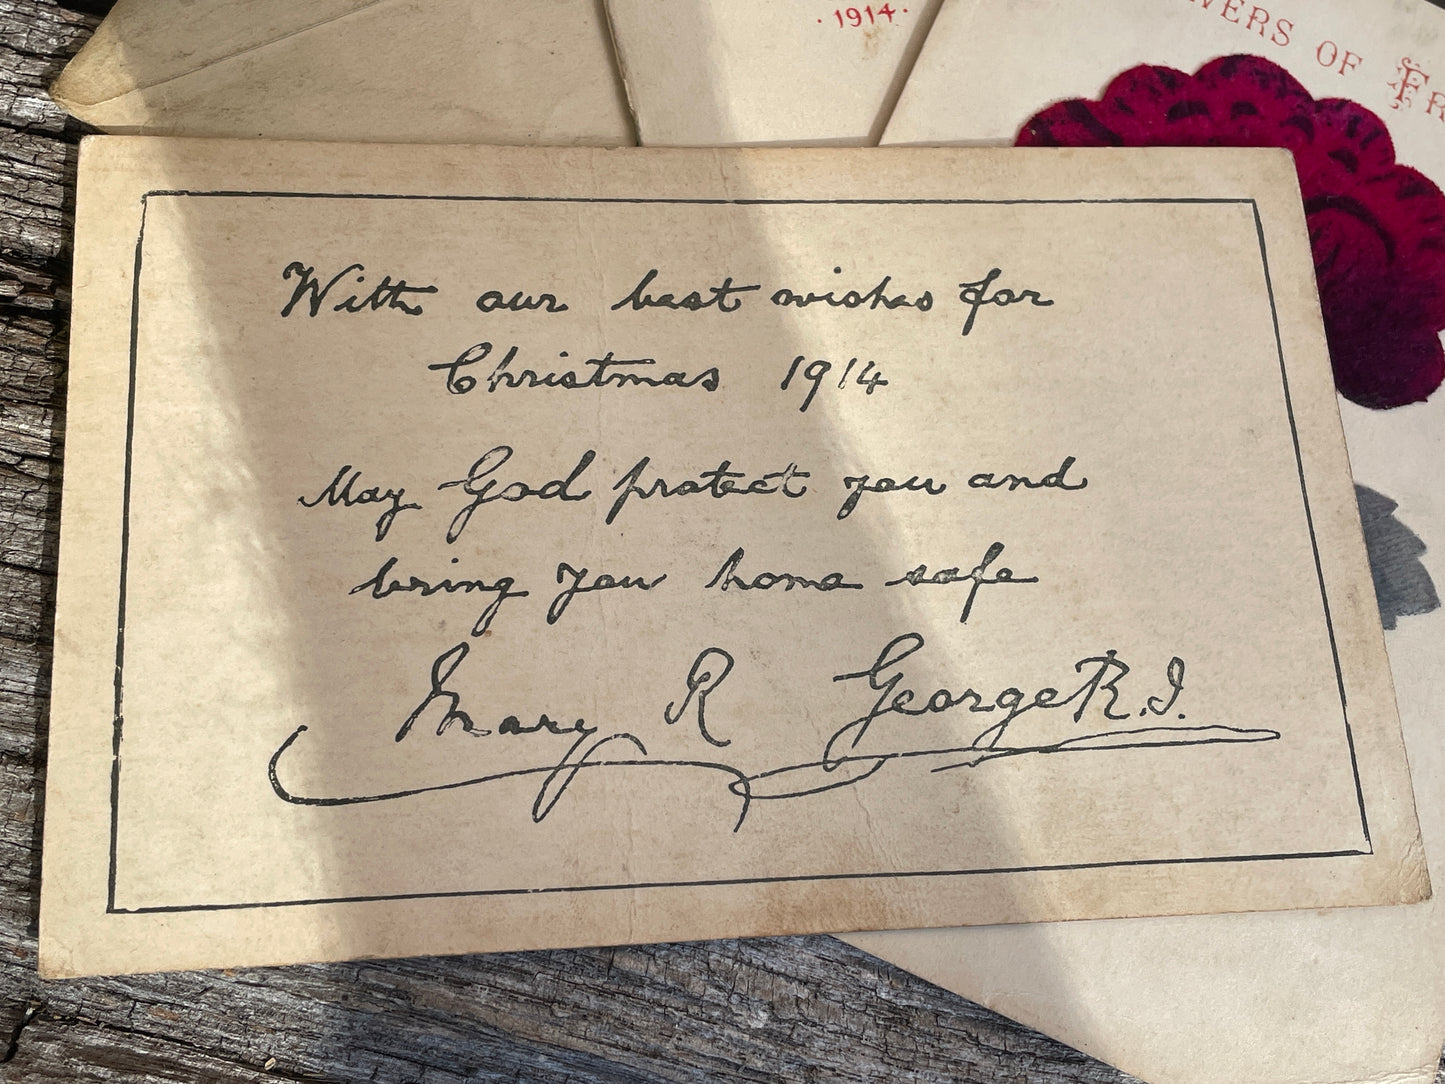 · 1914 ·
OF
With our best wishes for
Christmas 1914
May God protect you and
bring you home safe
Mary R George R.I.